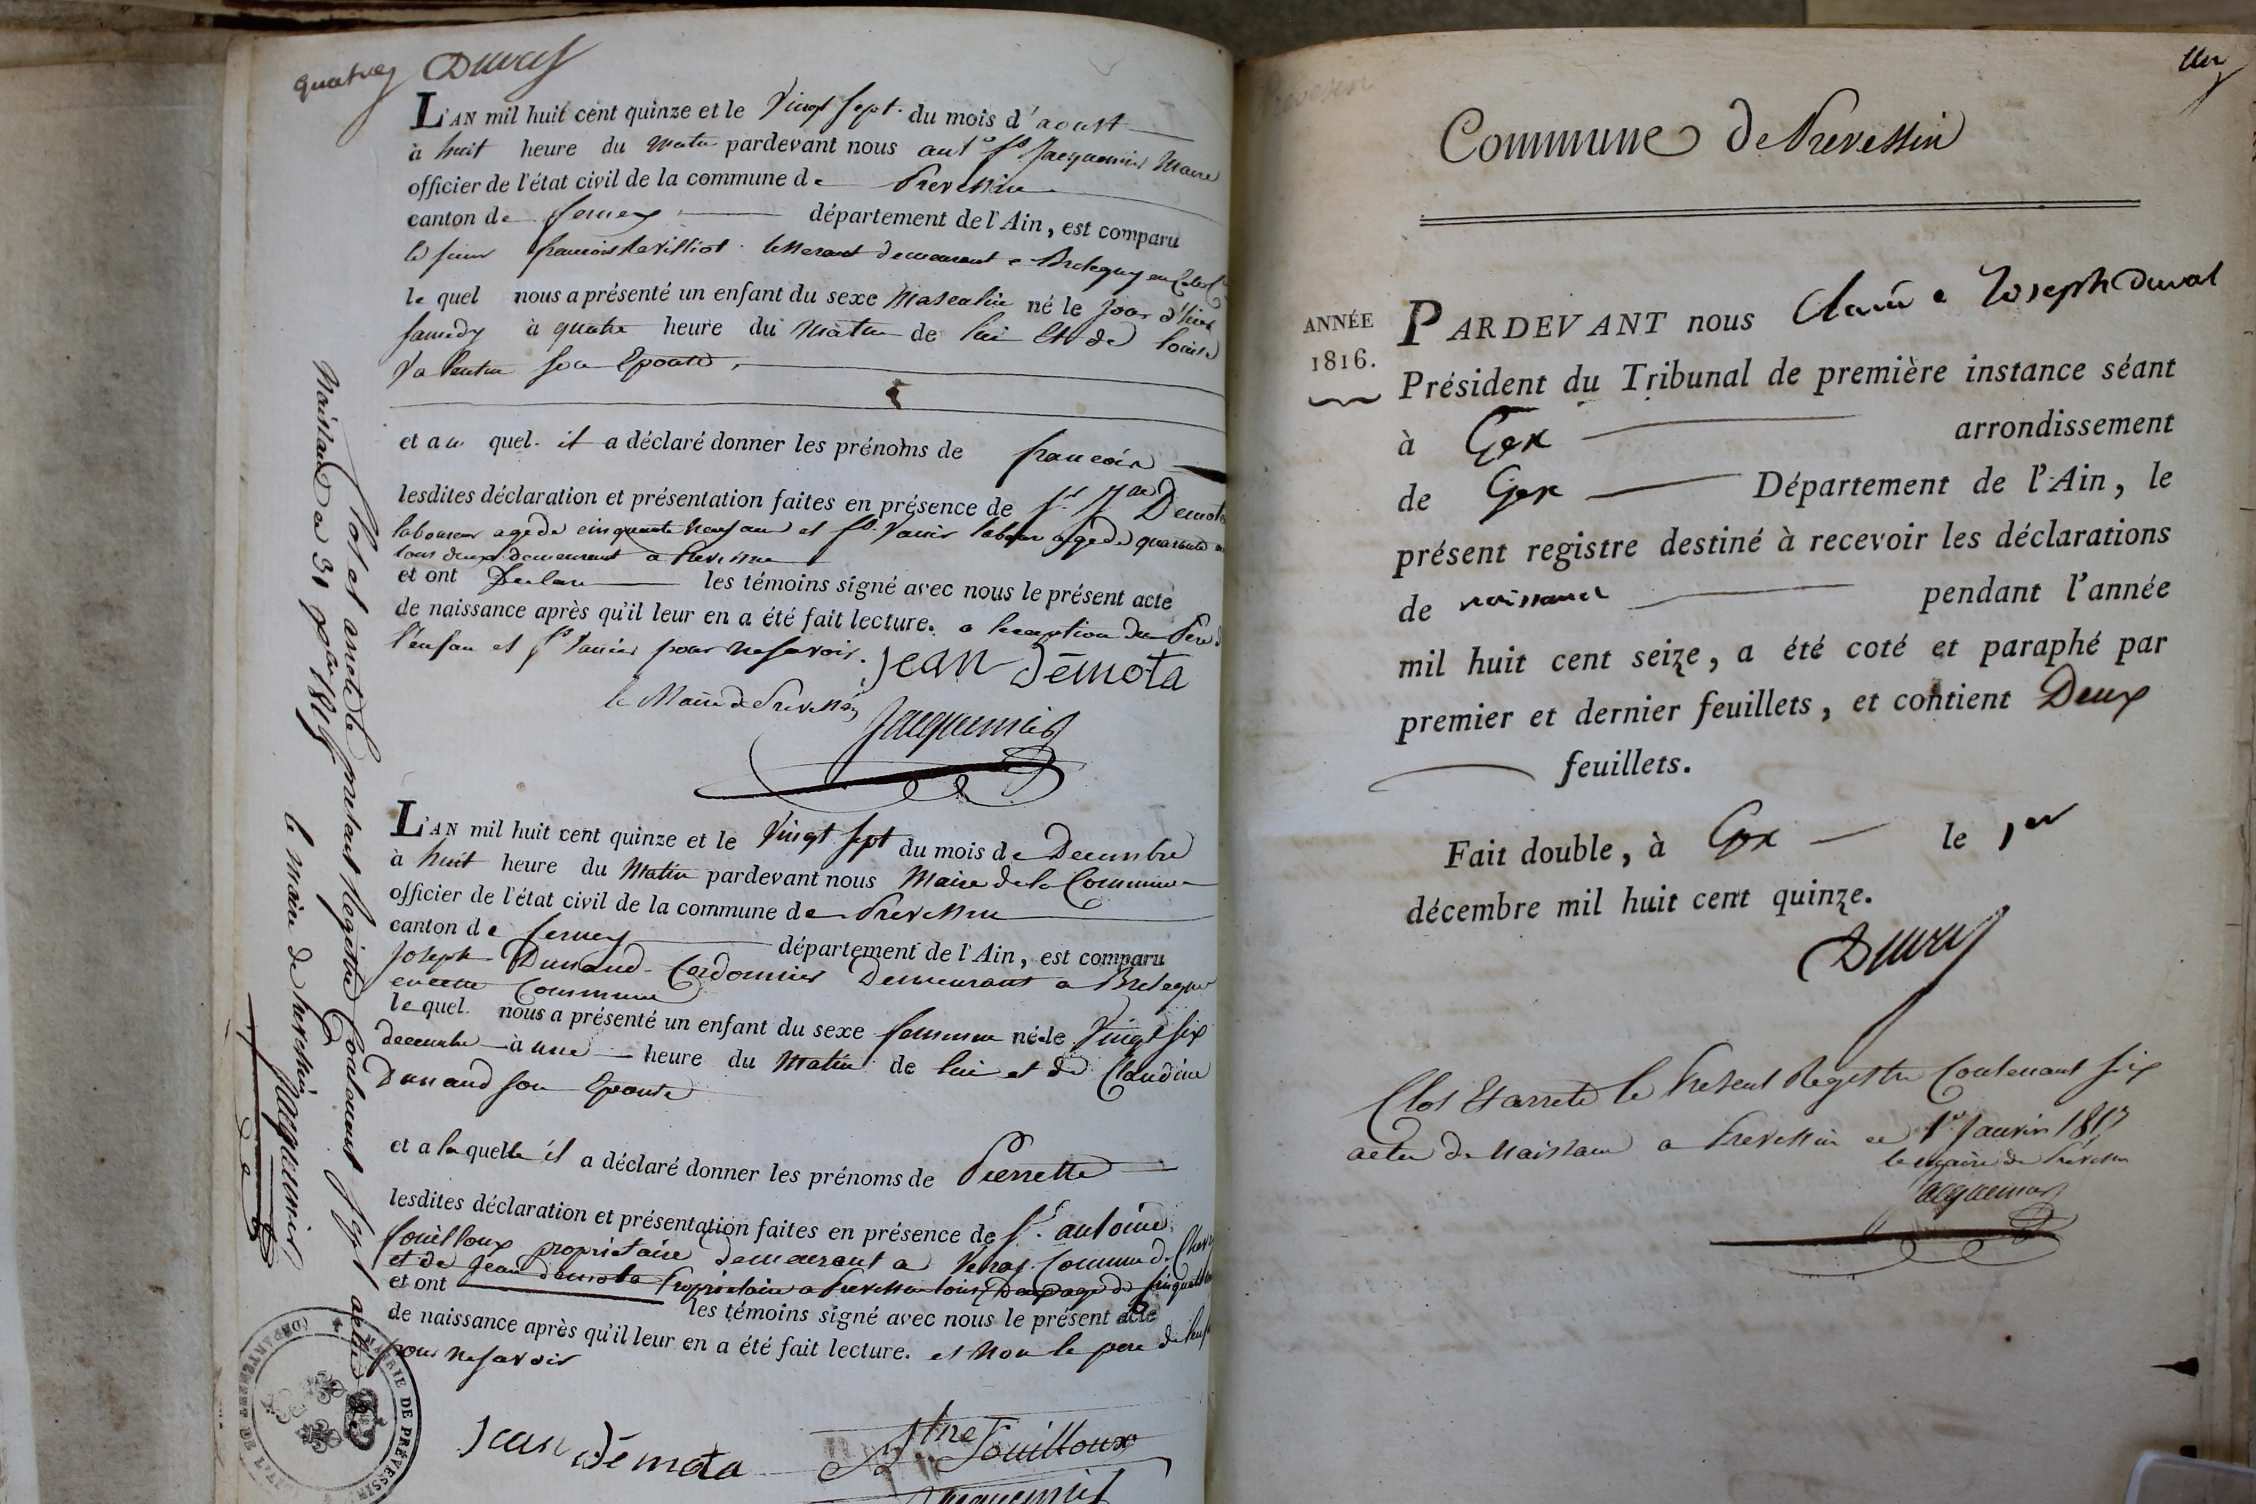 quatre Duval
L'AN mil huit cent quinze et le Vingt Sept. du mois d'aoust
à huit heure du matin pardevant nous ant.e f.s Jacquemier Maire
officier de l'état civil de la commune de Prevessin
canton de ferney département de l'Ain, est comparu
le sieur francois demeurant a Bretegny
le quel nous a présenté un enfant du sexe Masculin né le Jour d'hier
samedy à quatre heure du matin de lui et de louise
son Epouse,
et au quel. il a déclaré donner les prénoms de francois
lesdites déclaration et présentation faites en présence de Demota
laboureur agé de cinquante neuf ans et f.s Vanier agé de quarante
tous deux demeurant a Prevessin
et ont Declare les témoins signé avec nous le présent acte
de naissance après qu'il leur en a été fait lecture. a lexception du Pere de
l'enfan et f.s Vanier pour ne savoir.
Jean Démota
le Maire de Prevessin
Jacquemier
L'AN mil huit cent quinze et le Vingt Sept du mois de Decembre
à huit heure du Matin pardevant nous Maire de la Commune
officier de l'état civil de la commune de Prevessin
canton de ferney département de l'Ain, est comparu
Joseph Dunand Cordonnier Demeurant a Bretegny
en cette Commune
le quel. nous a présenté un enfant du sexe feminin né le Vingt six
decembre à une heure du Matin de lui et de Claudine
Dunand son Epouse
et a la quelle il a déclaré donner les prénoms de Pierrette
lesdites déclaration et présentation faites en présence de S.r antoine
fouilloux propriétaire demeurant a Commune de
et de Jean demota Proprietaire a Prevessin tous Deux agé de Cinquante
et ont les témoins signé avec nous le présent acte
de naissance après qu'il leur en a été fait lecture. et non le pere de
pour ne savoir
Jean Démota A.tne Fouilloux
Jacquemier
Clos et arrete le present Registre Contenant sept actes
Naissance a 31 Xbre 1815
le maire de Prevessin Jacquemier
MAIRIE DE PREVESSIN
un
Commune de Prevessin
ANNÉE
1816.
PARDEVANT nous Claude Joseph Duval
Président du Tribunal de première instance séant
à Gex arrondissement
de Gex Département de l'Ain, le
présent registre destiné à recevoir les déclarations
de naissance pendant l'année
mil huit cent seize, a été coté et paraphé par
premier et dernier feuillets, et contient Deux
feuillets.
Fait double, à Gex le 1er
décembre mil huit cent quinze.
Duval
Clos Et arreté le Present Registre Contenant six
actes de Naissance a Prevessin ce 1er Janvier 1817
le maire de Prevessin
Jacquemier